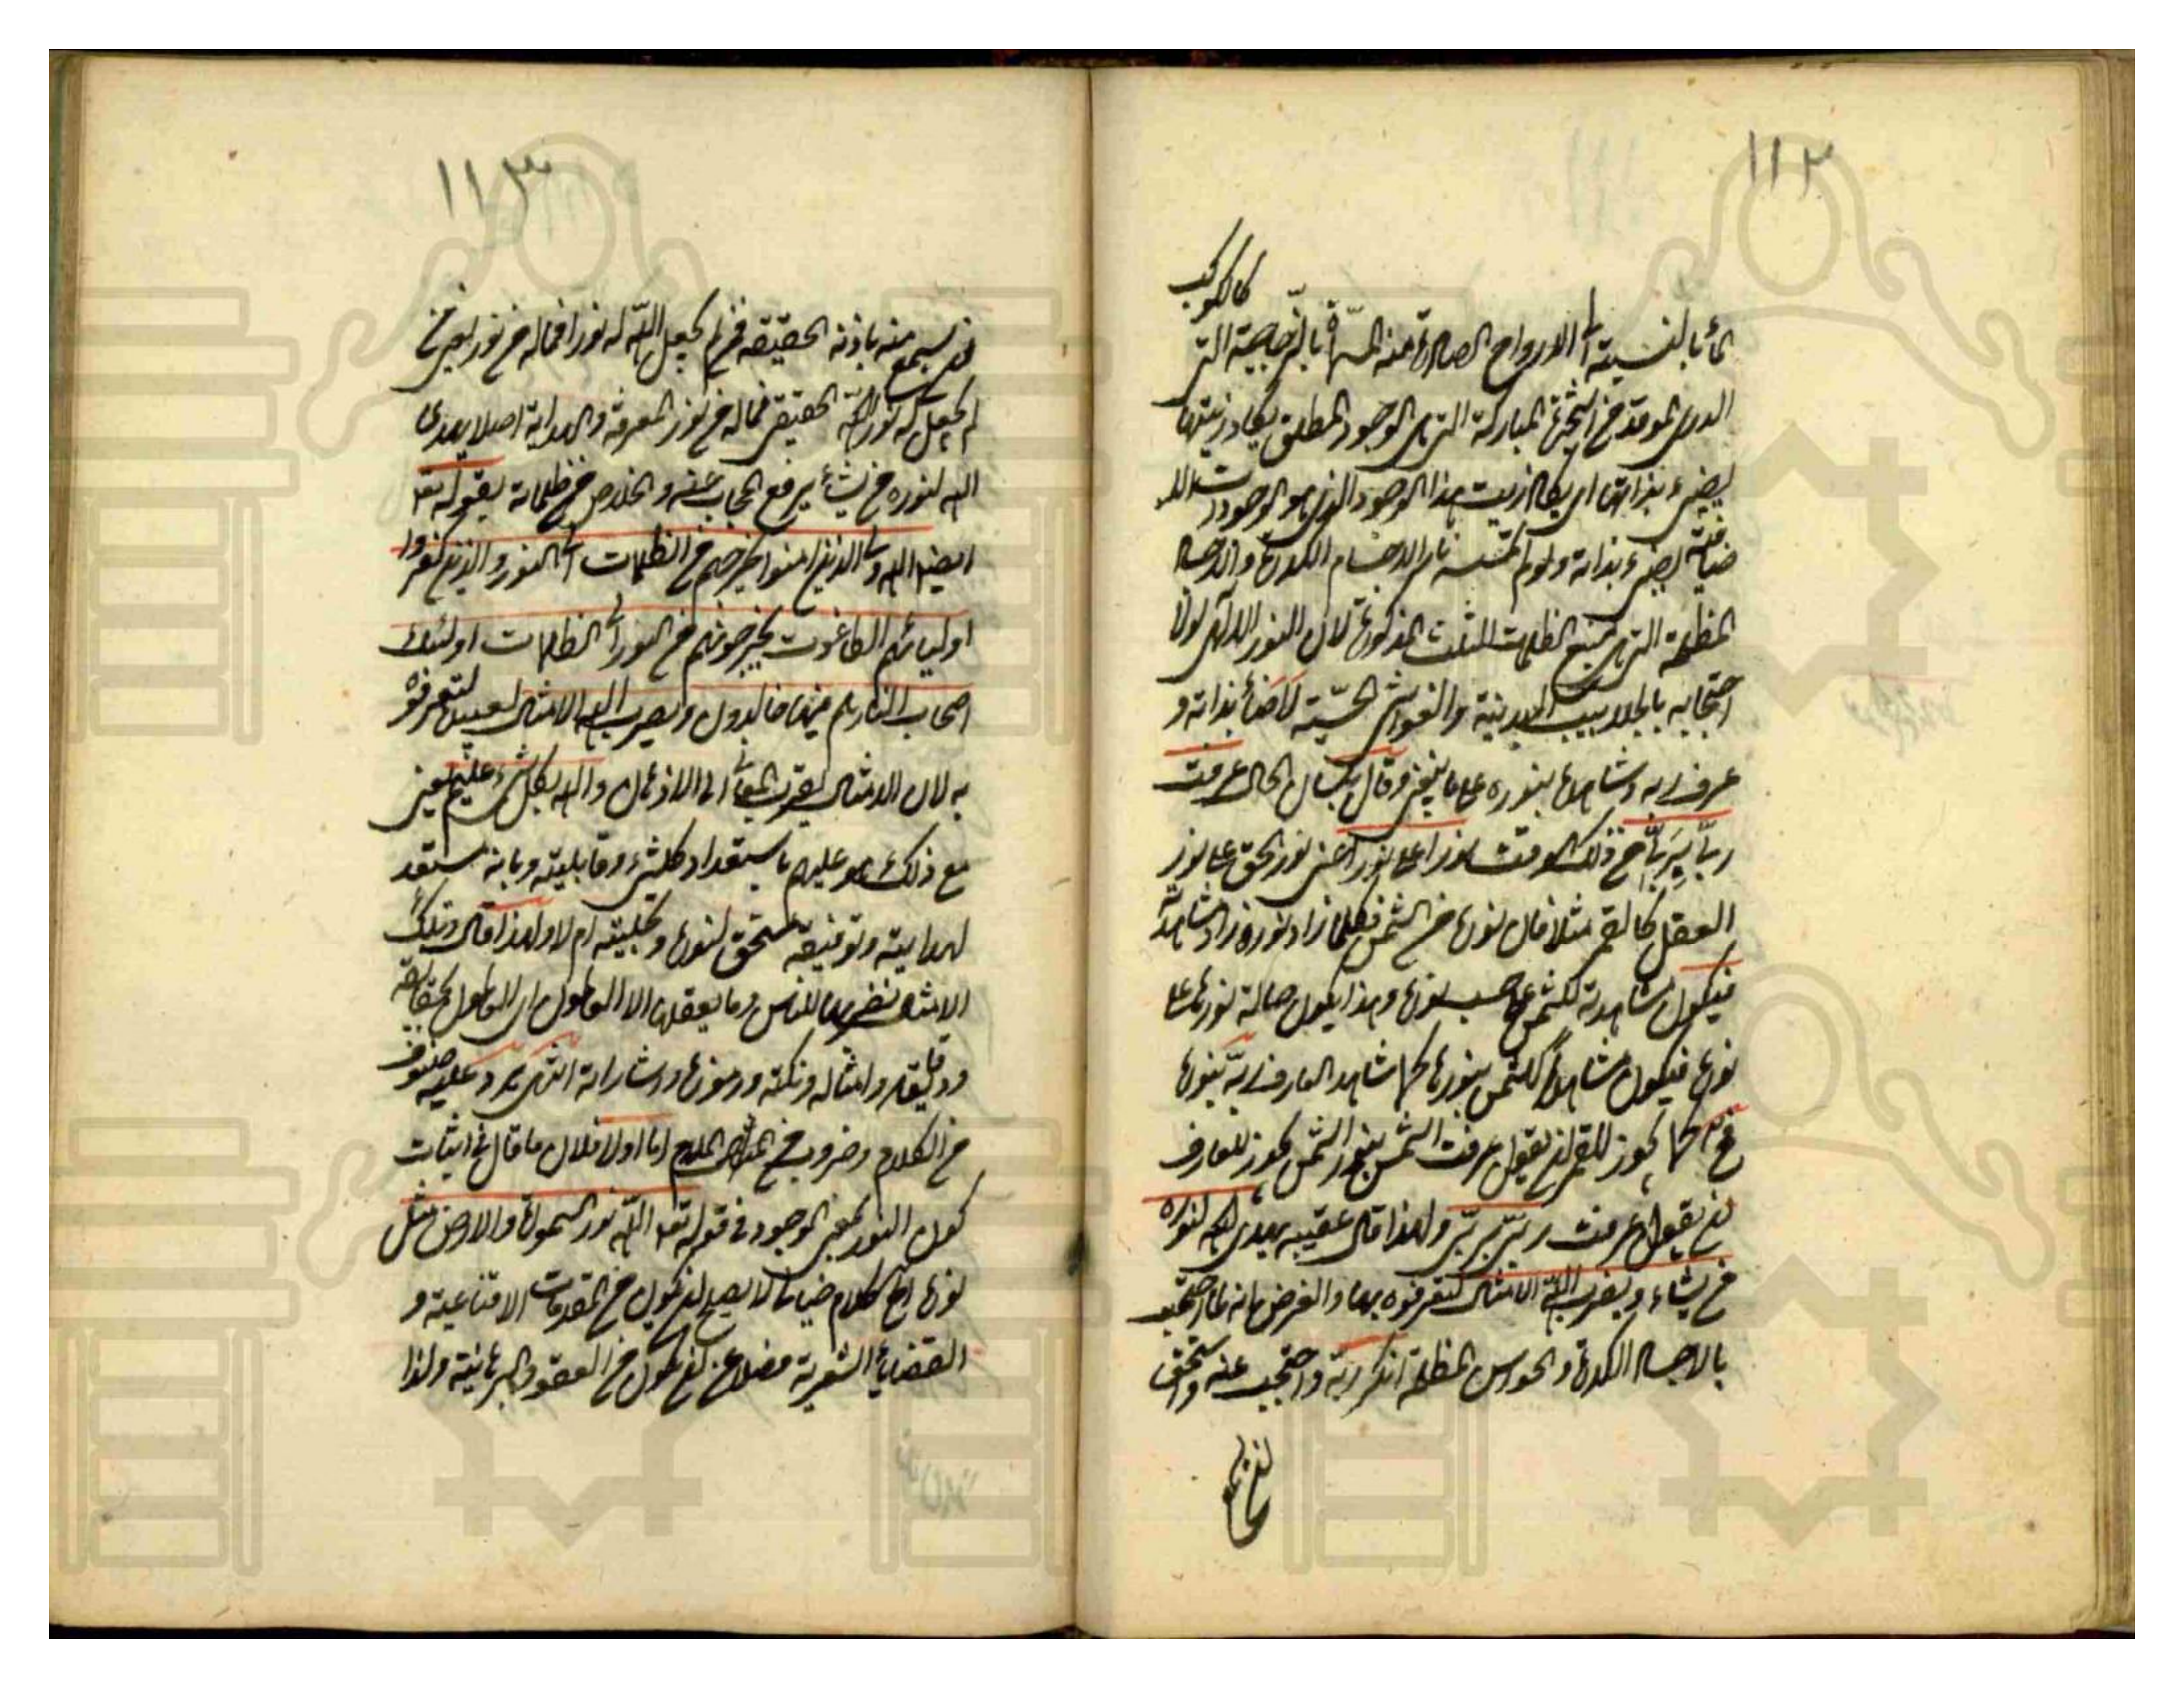 ١١٢
كالكوكب
بالنسبة الى الارواح الصادرة منه المسماة بالزجاجية التي
الدري الموقد من الشجرة المباركة التي هي الوجود المطلق يكاد زيتها
يضيء بذاتها اي يكاد زيت هذا الوجود الذي هو الوجود
يضيء بذاته ولو لم تمسسه نار الاجسام الكدرة والاجساد
المظلمة التي هي منبع الظلمات الثلث المذكورة لان النور الالهي لولا
احتجابه بالجلابيب البدنية والغواشي الحسية لاضأ بذاته و
عرف ربه وشاهده بنوره على ما ينبغي وقال بلسان الحال عرفت
ربي بربي في ذلك الوقت نورا على نور اعني نور الحق على نور
العقل كالقمر مثلا فان نوره من الشمس فكلما زاد نوره زاد مشاهدته
فيكون مشاهدته للشمس على حسب نورها وهذا يكون حالة نورها على
نوره فيكون مشاهدا للشمس بنورها كما شاهد العارف ربه بنوره
فح كما يجوز للقمر ان يقول عرفت الشمس بنور الشمس يجوز للعارف
ان يقول عرفت ربي بربي ولهذا قال عقيبه يهدي الله لنوره
من يشاء ويضرب الله الامثال لتعرفوه بها والغرض انه لما احتجب
بالاجساد الكدرة والحواس المظلمة انكر ربه واحتجب عنه واستحق
١١٣
منه باذنه الحقيقة فمن لم يجعل الله له نورا فما له من نور
لم يجعل له نور الله الحقيقي فما له من نور المعرفة والهداية اصلا يهدي
الله لنوره من يشأ برفع الحجاب عنه والخلاص من ظلماته بقوله تعا
ايضا الله ولي الذين امنوا يخرجهم من الظلمات الى النور والذين كفروا
اوليائهم الطاغوت يخرجونهم من النور الى الظلمات اولئك
اصحاب النار هم فيها خالدون ويضرب الله الامثال لعبيده لتعرفوه
به لان الامثال يقرب المعاني الى الاذهان والله بكل شيء عليم يعني
مع ذلك هو عليم باستعداد كلشيء وقابليته وبانه مستعد
لهدايته وتوفيقه مستحق لنوره وتجليته ام لا ولهذا قال وتلك
الامثال نضربها للناس وما يعقلها الا العالمون اي العالمون بحقايقه
ودقايقه وامثاله ونكته ورموزه واشاراته انتهى يرد عليه صنوف
من الكلام وضروب من الملام اما اولا فلان ما قال في اثبات
كون النور بمعنى الوجود في قوله تعا الله نور السموات والارض مثل
نوره كلام لا يصح ان يكون من المقدمات الاقناعية و
القضايا الشعرية فضلا عن ان يكون من العقود البرهانية ولذا